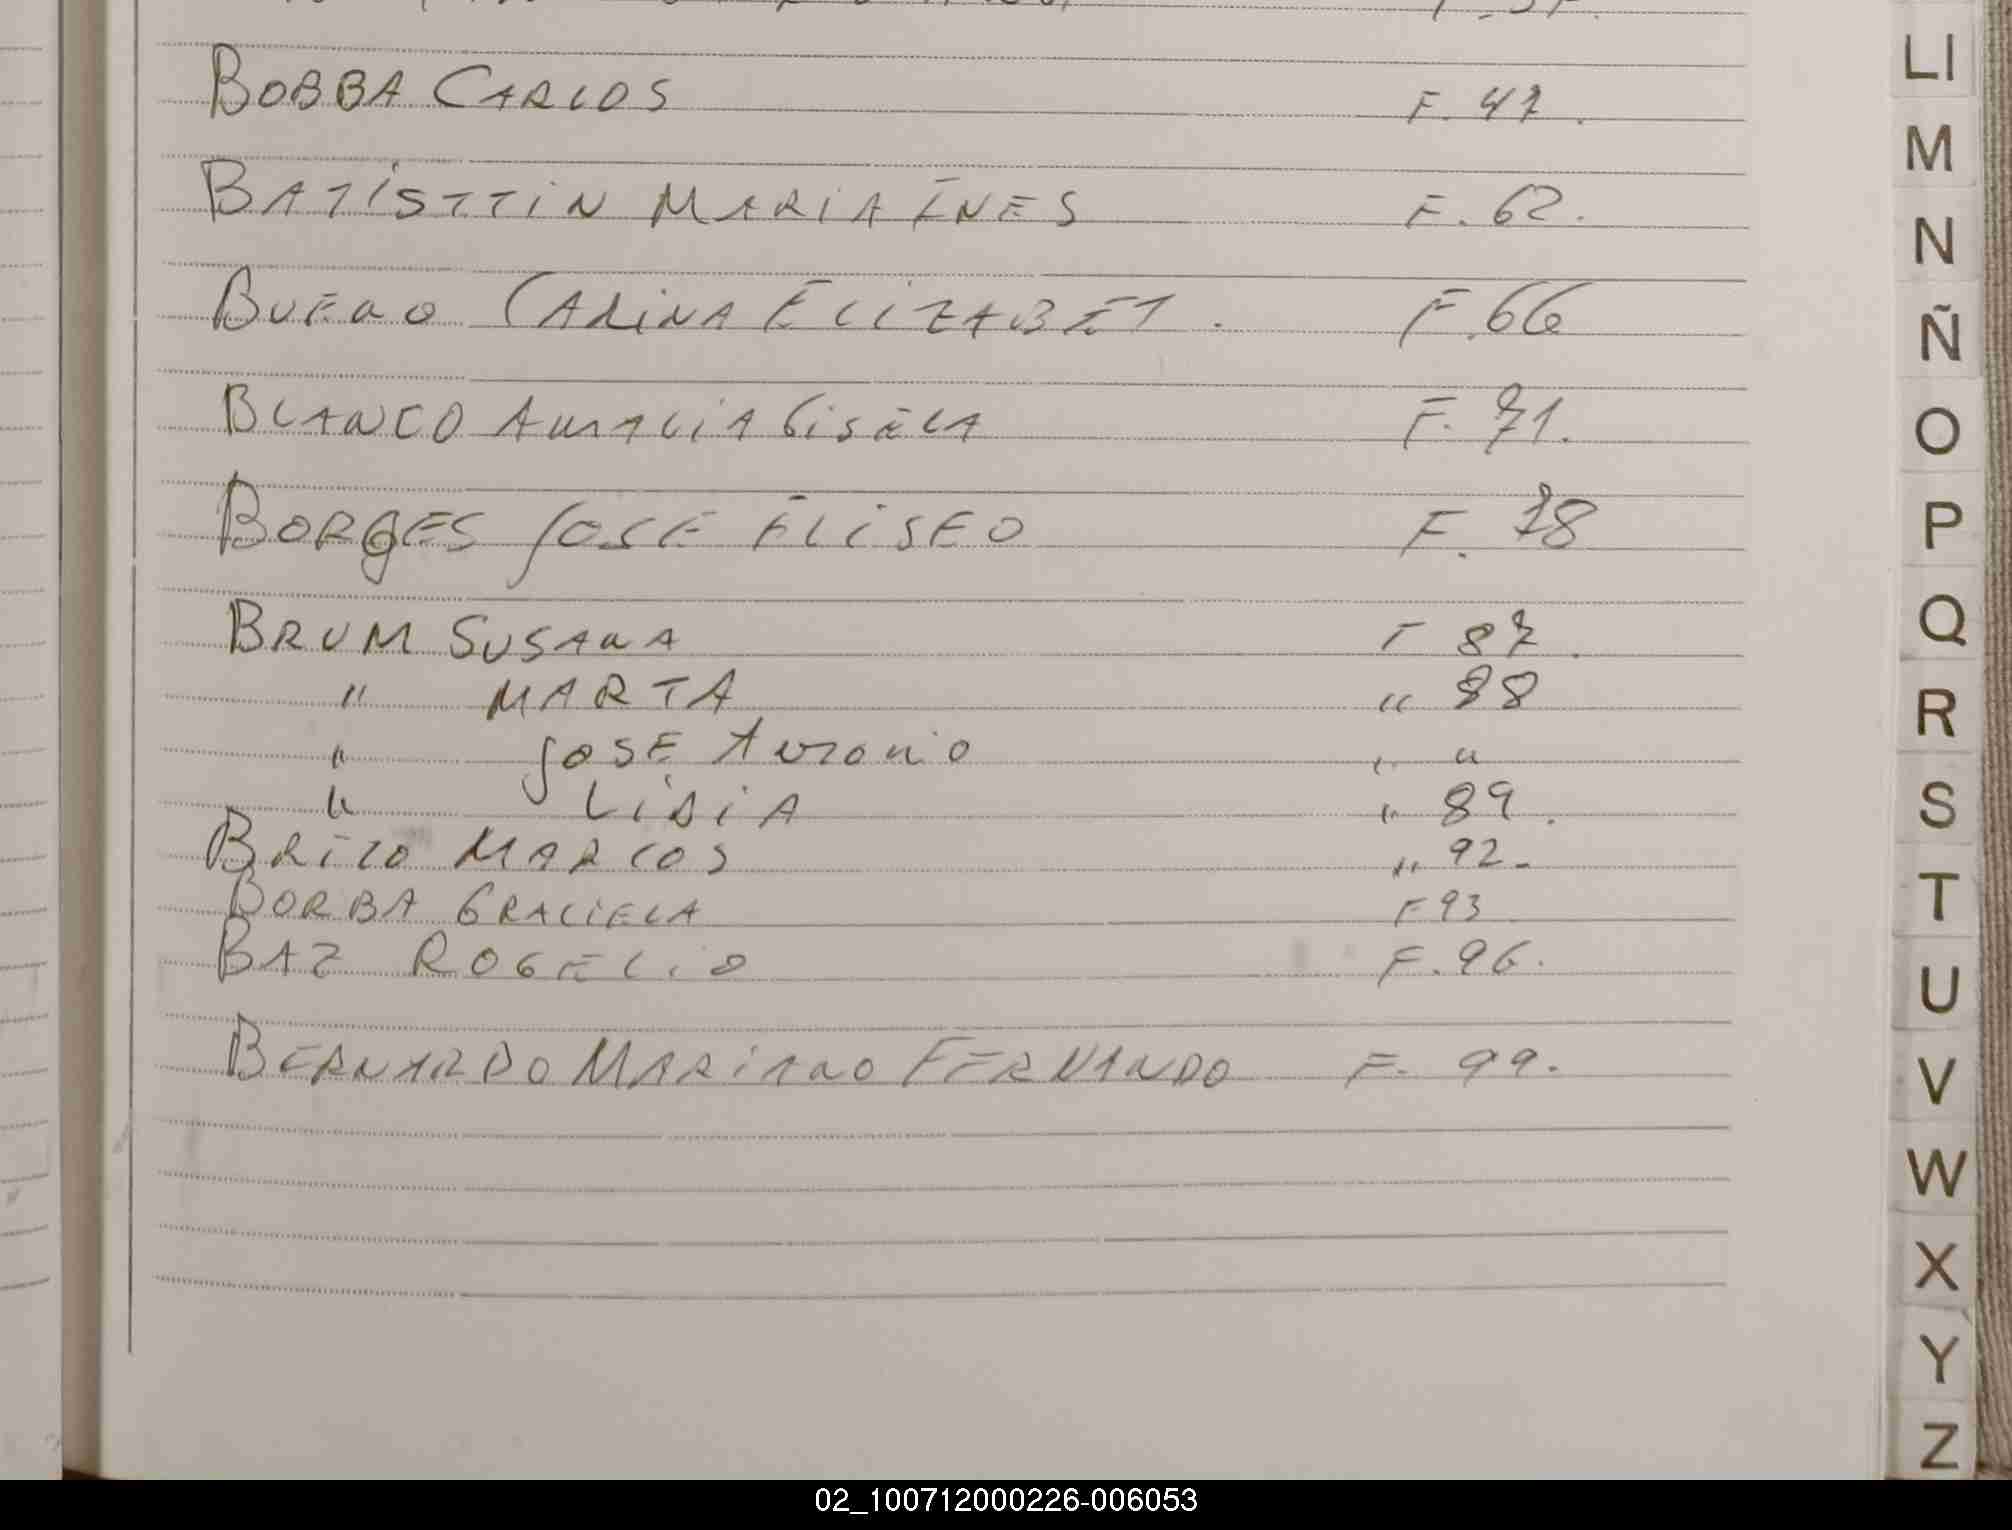 BOBBA CARLOS F. 47.
BATISTTIN MARIA INES F. 62.
BUENO CARINA ELIZABET. F. 66
BLANCO AMALIA GISELA F. 71.
BORGES JOSE ELISEO F. 78
BRUM SUSANA F 87.
" MARTA " 88
" JOSE ANTONIO " "
" LIDIA " 89.
BRIZO MARCOS " 92.
BORBA GRACIELA F 93
BAZ ROGELIO F. 96.
BERNARDO MARIANO FERNANDO F. 99.
LI
M
N
Ñ
O
P
Q
R
S
T
U
V
W
X
Y
Z
02_100712000226-006053